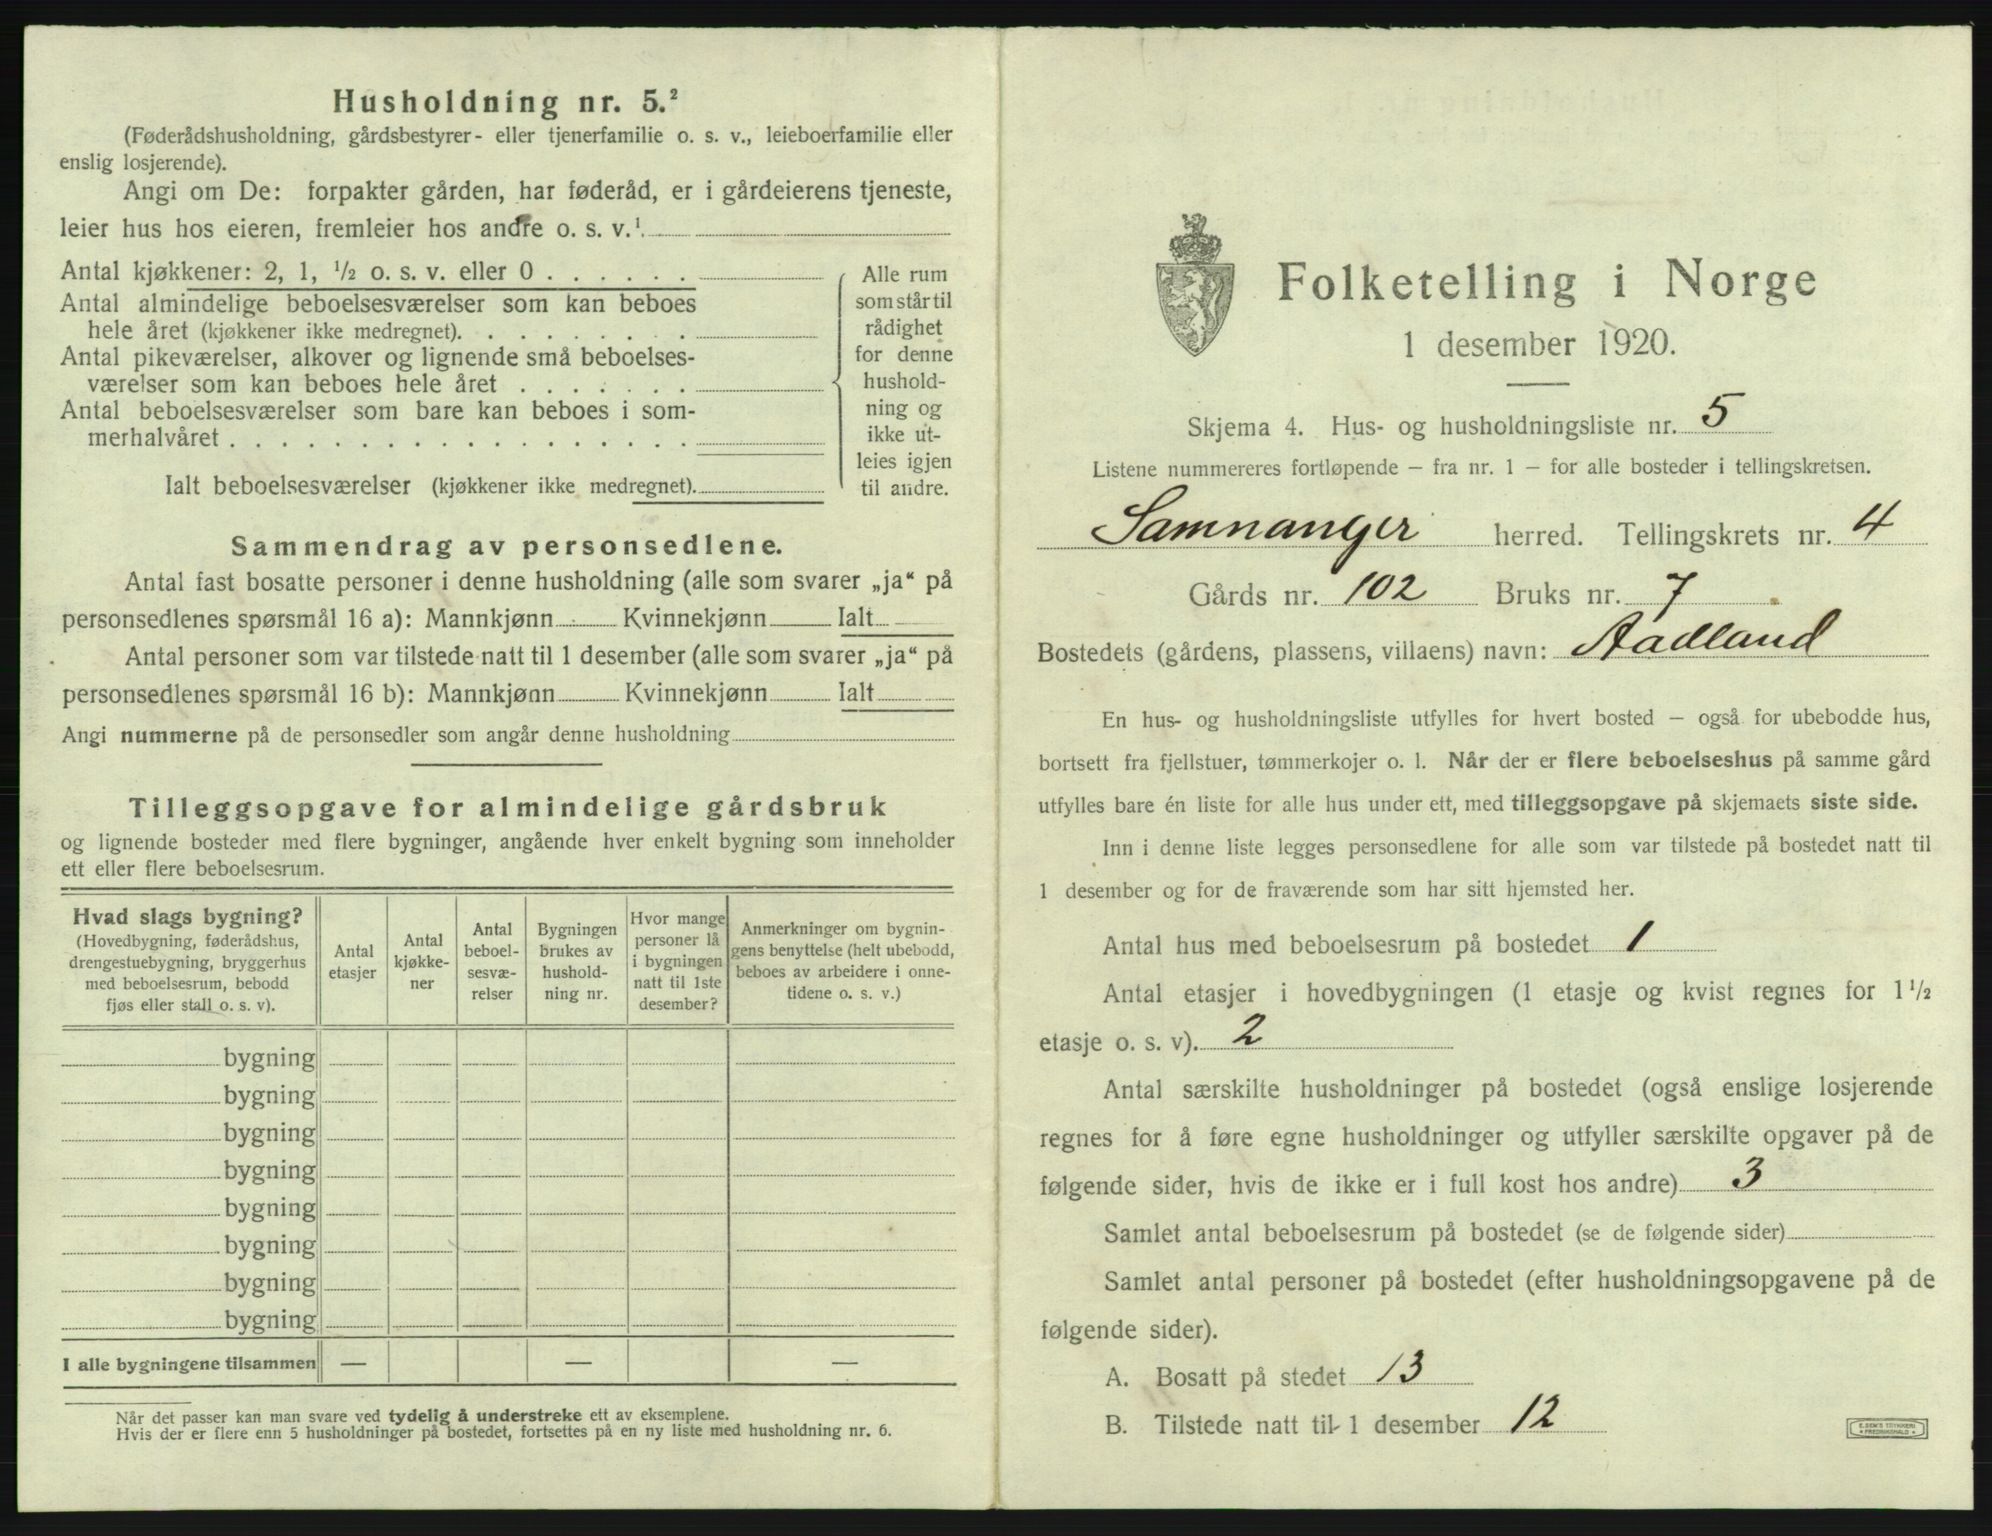 Husholdning nr. 5.²
(Føderådshusholdning, gårdsbestyrer- eller tjenerfamilie o. s. v., leieboerfamilie eller
enslig losjerende).
Angi om De: forpakter gården, har føderåd, er i gårdeierens tjeneste,
leier hus hos eieren, fremleier hos andre o. s. v.¹
Antal kjøkkener: 2, 1, ½ o. s. v. eller 0 . . . . . .
Antal almindelige beboelsesværelser som kan beboes
hele året (kjøkkener ikke medregnet). . . . . . . . .
Antal pikeværelser, alkover og lignende små beboelses-
værelser som kan beboes hele året . . . . . . .
Antal beboelsesværelser som bare kan beboes i som-
merhalvåret . . . . . . . . . . . . . . . . . .
Ialt beboelsesværelser (kjøkkener ikke medregnet).
Alle rum
som står til
rådighet
for denne
hushold-
ning og
ikke ut-
leies igjen
til andre.
Sammendrag av personsedlene.
Antal fast bosatte personer i denne husholdning (alle som svarer „ja“ på
personsedlenes spørsmål 16 a): Mannkjønn Kvinnekjønn Ialt
Antal personer som var tilstede natt til 1 desember (alle som svarer „ja“ på
personsedlenes spørsmål 16 b): Mannkjønn Kvinnekjønn Ialt
Angi nummerne på de personsedler som angår denne husholdning
Tilleggsopgave for almindelige gårdsbruk
og lignende bosteder med flere bygninger, angående hver enkelt bygning som inneholder
ett eller flere beboelsesrum.
Hvad slags bygning?
(Hovedbygning, føderådshus,
drengestuebygning, bryggerhus
med beboelsesrum, bebodd
fjøs eller stall o. s. v).
Antal
etasjer
Antal
kjøkke-
ner
Antal
beboel-
sesvæ-
relser
Bygningen
brukes av
hushold-
ning nr.
Hvor mange
personer lå
i bygningen
natt til 1ste
desember?
Anmerkninger om bygnin-
gens benyttelse (helt ubebodd,
beboes av arbeidere i onne-
tidene o. s. v.)
bygning
bygning
bygning
bygning
bygning
bygning
bygning
bygning
I alle bygningene tilsammen — — —
Når det passer kan man svare ved tydelig å understreke ett av eksemplene.
Hvis der er flere enn 5 husholdninger på bostedet, fortsettes på en ny liste med husholdning nr. 6.
Folketelling i Norge
1 desember 1920.
Skjema 4. Hus- og husholdningsliste nr. 5
Listene nummereres fortløpende – fra nr. 1 – for alle bosteder i tellingskretsen.
Samnanger herred. Tellingskrets nr. 4
Gårds nr. 102 Bruks nr. 7
Bostedets (gårdens, plassens, villaens) navn: Aadland
En hus- og husholdningsliste utfylles for hvert bosted – også for ubebodde hus,
bortsett fra fjellstuer, tømmerkojer o. l. Når der er flere beboelseshus på samme gård
utfylles bare én liste for alle hus under ett, med tilleggsopgave på skjemaets siste side.
Inn i denne liste legges personsedlene for alle som var tilstede på bostedet natt til
1 desember og for de fraværende som har sitt hjemsted her.
Antal hus med beboelsesrum på bostedet 1
Antal etasjer i hovedbygningen (1 etasje og kvist regnes for 1½
etasje o. s. v). 2
Antal særskilte husholdninger på bostedet (også enslige losjerende
regnes for å føre egne husholdninger og utfyller særskilte opgaver på de
følgende sider, hvis de ikke er i full kost hos andre) 3
Samlet antal beboelsesrum på bostedet (se de følgende sider)
Samlet antal personer på bostedet (efter husholdningsopgavene på de
følgende sider).
A. Bosatt på stedet 13
B. Tilstede natt til 1 desember 12
E. SEM'S TRYKKERI
• FREDRIKSHALD •